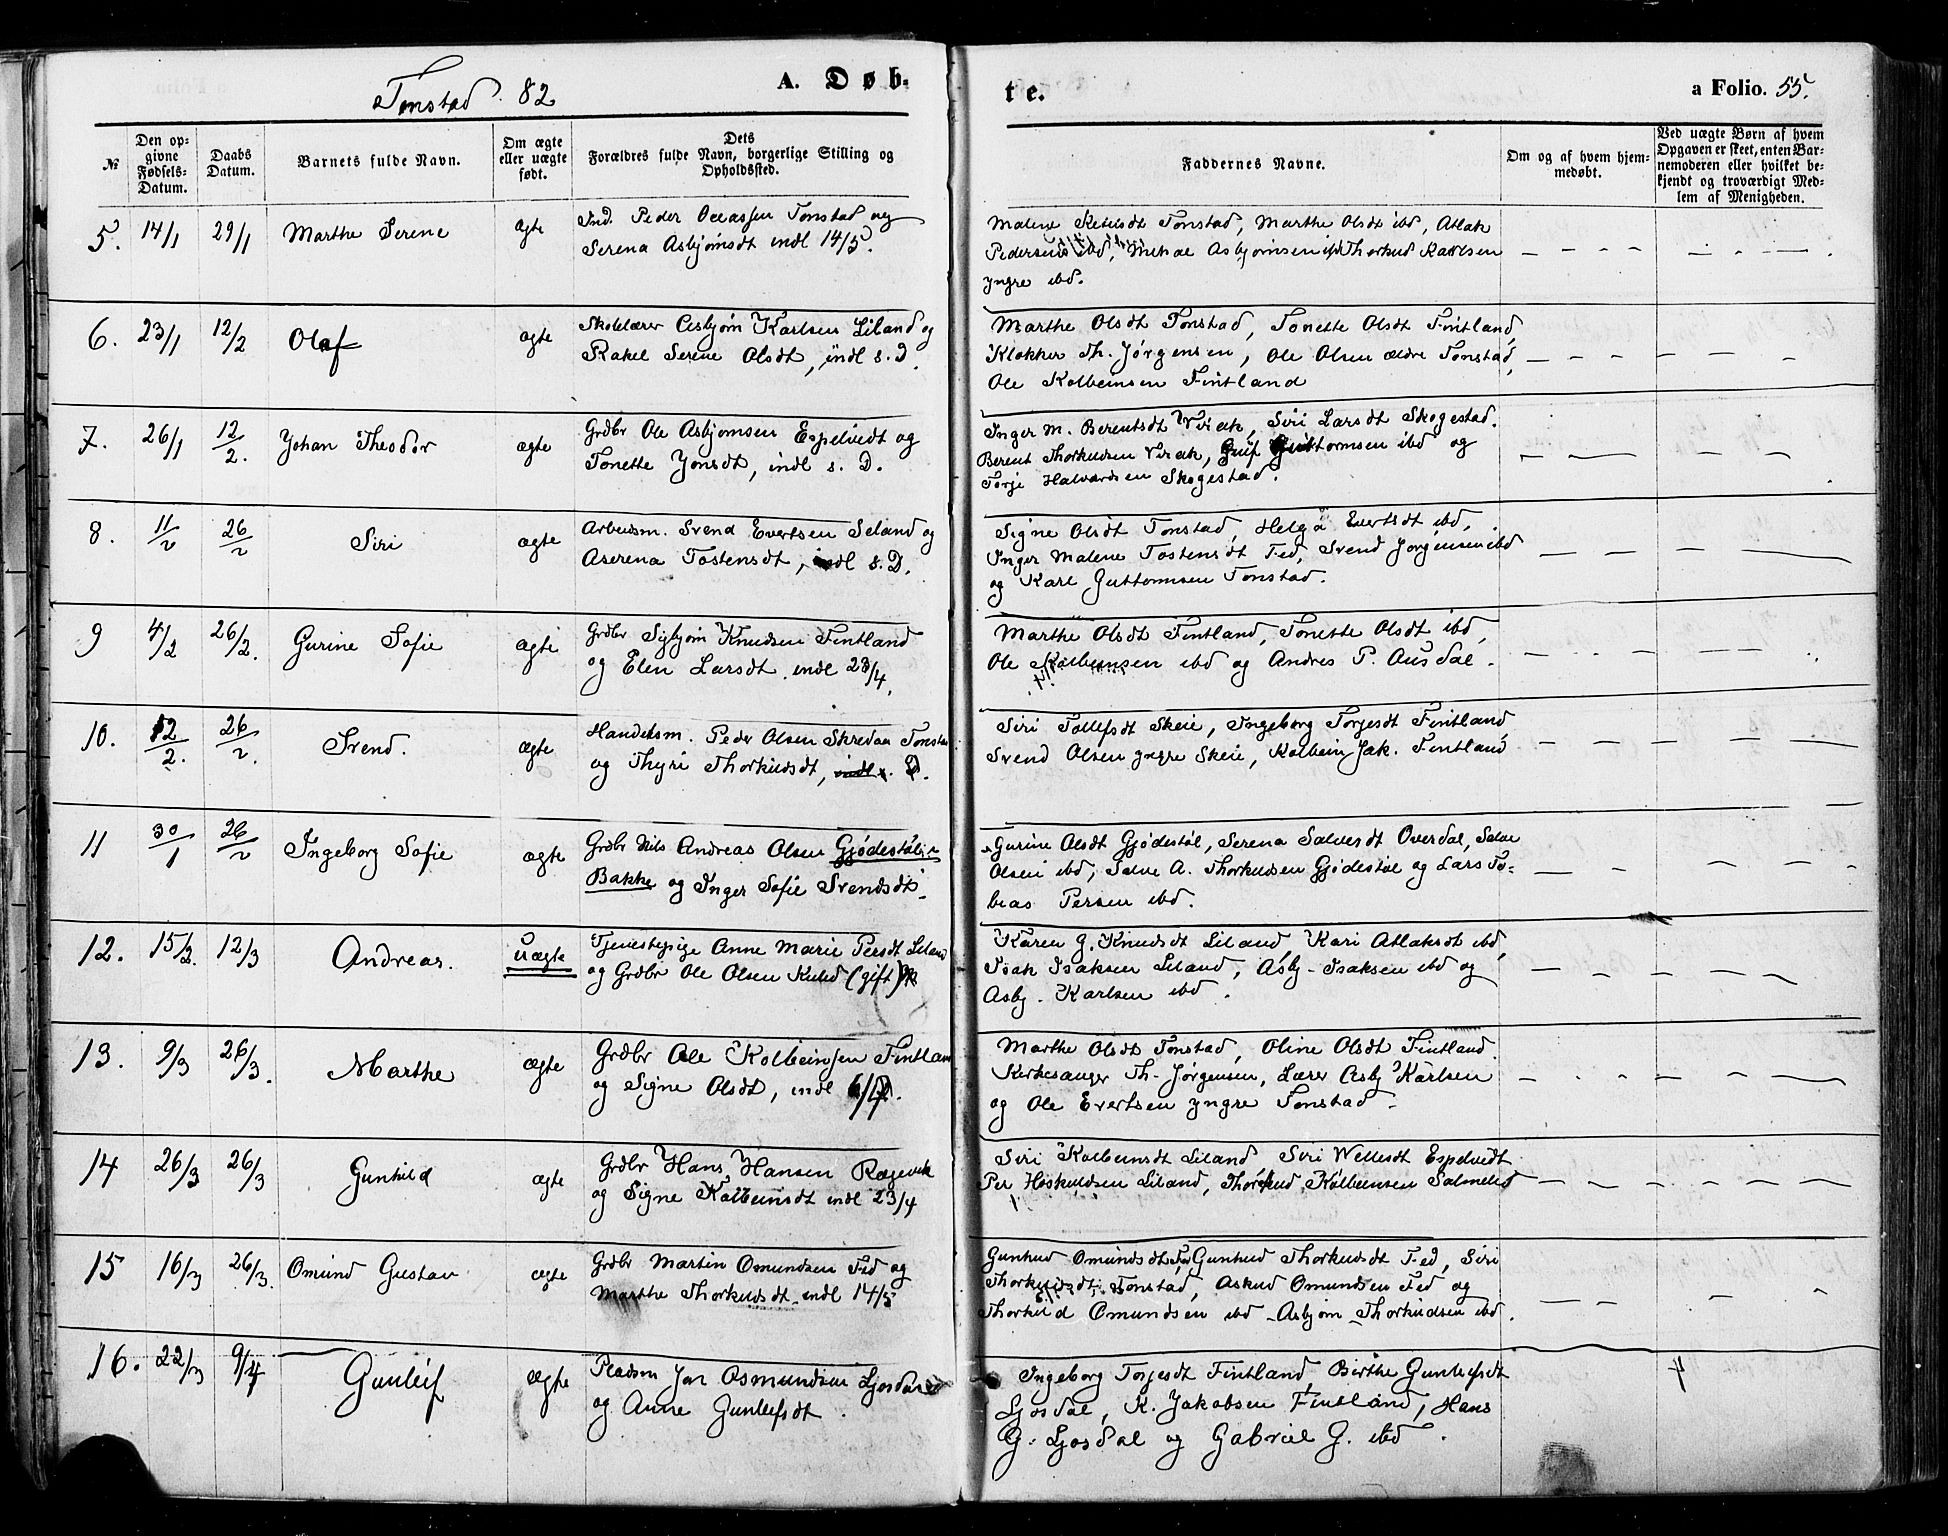 Tonstad 82
A. Døb-
te.
a Folio. 55.
№
Den opgivne Fødsels-Datum.
Daabs Datum.
Barnets fulde Navn.
Om ægte eller uægte født.
Dets Forældres fulde Navn, borgerlige Stilling og Opholdssted.
Faddernes Navne.
Om og af hvem hjemmedøbt.
Ved uægte Børn af hvem Opgaven er skeet, enten Barnemoderen eller hvilket bekjendt og troværdigt Medlem af Menigheden.
5. 14/1 29/1 Marthe Serene ægte
Ind. Peder Tonstad og
Serena Asbjørnsdt indl 14/5.
Malene Ketilsdt Tonstad, Marthe Olsdt ibd, Atlak
Pedersen ibd, Mikal Asbjørnsen ibd Thorkild Karlsen
yngre ibd.
6. 23/1 12/2 Olaf ægte
Skolelærer Asbjørn Karlsen Liland og
Rakel Serene Olsdt, indl s. D.
Marthe Olsdt Tonstad, Tonette Olsdt Fintland,
Klokker Th. Jørgensen, Ole Olsen ældre Tonstad,
Ole Kolbeinsen Fintland
7. 26/1 12/2. Johan Theodor ægte
Grdbr Ole Asbjørnsen Espelvedt og
Tonette Jonsdt, indl s. D.
Inger M. Berentsdt Virak, Siri Larsdt Skogestad.
Berent Thorkildsen Virak, Guttormsen ibd og
Torje Halvardsen Skogestad.
8. 11/2 26/2 Siri ægte
Arbeidsm. Svend Evertsen Seland og
Aserena Tostensdt, indl s. D.
Signe Olsdt Tonstad, Helga Evertsdt ibd,
Inger Malene Tostensdt Fed, Svend Jørgensen ibd
og Karl Guttormsen Tonstad.
9 4/2 26/2. Gurine Sofie ægte
Grdbr Sigbjørn Knudsen Fintland
og Elen Larsdt. indl 23/4.
Marthe Olsdt Fintland, Tonette Olsdt ibd,
Ole Kolbeinsen ibd og Andres P. Ausdal.
10. 12/2. 26/2. Svend. ægte
Handelsm. Peder Olsen Skredaa Tonstad
og Thyri Thorkildsdt, indl s. D.
Siri Tollefsdt Skeie, Ingeborg Torjesdt Fintland
Svend Olsen yngre Skeie, Kolbein Jak. Fintland
11 30/1 26/2 Ingeborg Sofie ægte
Grdbr Nils Andreas Olsen Gjødestøl i
Bakke og Inger Sofie Svendsdt.
Gurine Olsdt Gjødestøl, Serena Salvesdt Overdal, Salve
Olsen ibd, Salve A. Thorkildsen Gjødestøl og Lars To-
bias Persen ibd.
12. 15/2. 12/3 Andreas. Uægte
Tjenestepige Anne Marie Persdt Liland
og Grdbr Ole Olsen Kulid (gift)
Karen G. Knudsdt Liland, Kari Atlaksdt ibd,
Isak Isaksen Liland, Asbj. Isaksen ibd og
Asbj. Karlsen ibd.
13. 9/3 26/3. Marthe ægte
Grdbr Ole Kolbeinsen Fintland
og Signe Olsdt, indl 6/7.
Marthe Olsdt Tonstad, Oline Olsdt Fintland.
Kirkesanger Th. Jørgensen, Lærer Asbj Karlsen
og Ole Evertsen yngre Tonstad.
14 26/3 26/3 Gunhild ægte
Grdbr Hans Hansen Røgevik
og Signe Kolbeinsdt indl 23/4
Siri Kolbeinsdt Liland Siri Wellesdt Espelvedt
Per Høskuldsen Liland, Thorkild Kolbeinsen Salmelid
15 16/3 26/3. Omund Gustav ægte
Grdbr Martin Omundsen Fed og
Marthe Thorkildsdt. indl 14/5
Gunhild Omundsdt Fed Gunhild Thorkildsdt Fed, Siri
Thorkildsdt Tonstad, Askild Omundsen Fed og
Thorkild Omundsen ibd - Asbjørn Thorkildsen ibd.
16. 22/3 9/4 Gunleif ægte
Pladsm Jon Osmundsen Ljosdal
og Anne Gunleifsdt.
Ingeborg Torjesdt Fintland Birthe Gunleifsdt
Ljosdal, K. Jakobsen Fintland, Hans
G. Ljosdal og Gabriel G. ibd.